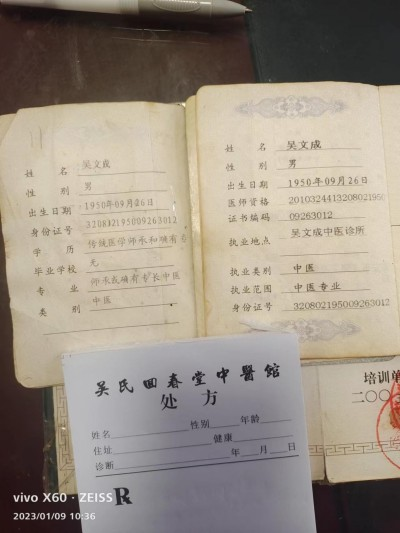 姓 名 吴文成
性 别 男
出生日期 1950年09月26日
身份证号 32082195009263012
学 历 传统医学师承和确有专
毕业学校 无
专 业 师承或确有专长中医
类 别 中医
姓 名 吴文成
性 别 男
出生日期 1950年09月26日
医师资格 2010324413208021950
证书编码 09263012
执业地点 吴文成中医诊所
执业类别 中医
执业范围 中医专业
身份证号 320802195009263012
培训单
二〇〇
吴氏回春堂中醫館
处 方
姓名 性别 年龄
住址 健康
诊断 年 月 日
R
vivo X60 · ZEISS
2023/01/09 10:36